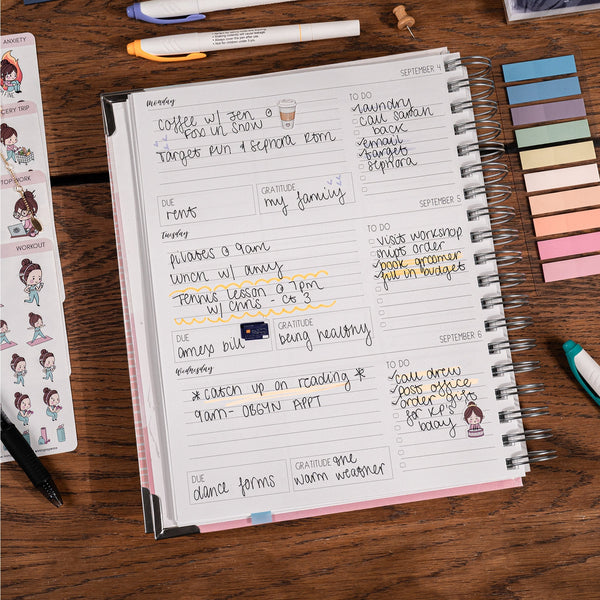 ANXIETY
GROCERY TRIP
TOP WORK
WORKOUT
Monday
SEPTEMBER 4
coffee w/ Jen @
Fox in Snow
Target Run & Sephora Rtrn
TO DO
laundry
call sarah
back
email
target
sephora
DUE
rent
GRATITUDE
my family
Tuesday
SEPTEMBER 5
pilates @ 9am
lunch w/ amy
Tennis lesson @ 7pm
w/ Chris - Ct 3
TO DO
visit workshop
mvpt order
book groomer
fill in budget
DUE
amex bill
GRATITUDE
being healthy
Wednesday
SEPTEMBER 6
*catch up on reading*
9am- OBGYN APPT
TO DO
call drew
post office
order gift
for KP's
bday
DUE
dance forms
GRATITUDE the
warm weather